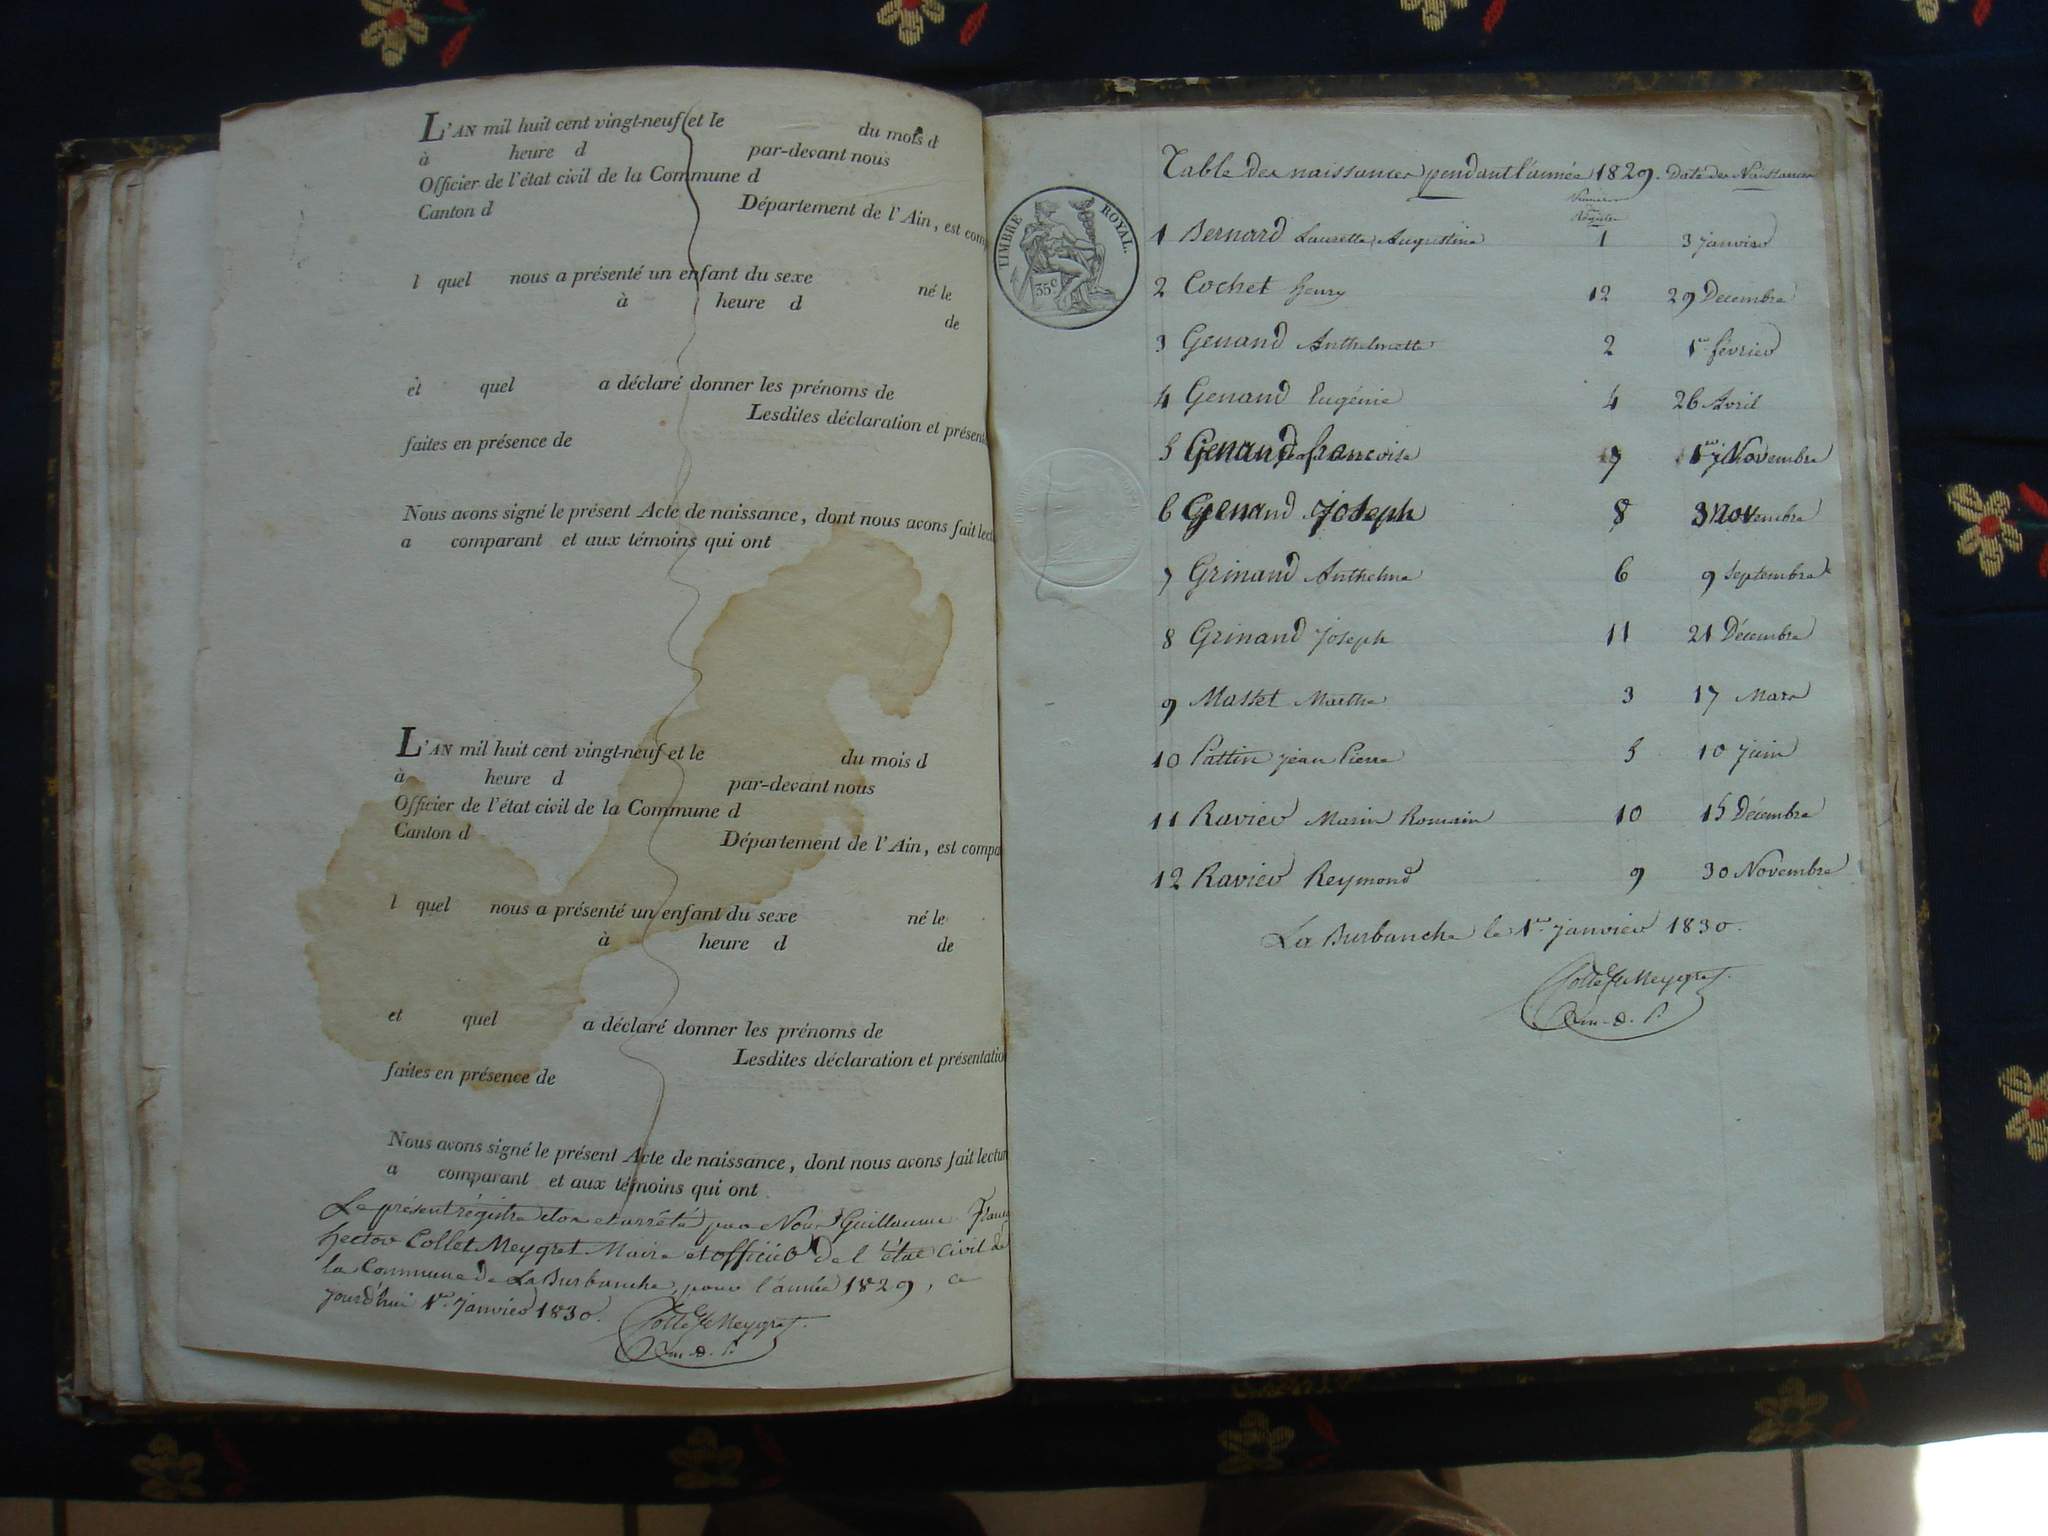 L'AN mil huit cent vingt-neuf et le du mois d
à heure d par-devant nous
Officier de l'état civil de la Commune d
Canton d Département de l'Ain, est comp
l quel nous a présenté un enfant du sexe né le
à heure d de
et quel a déclaré donner les prénoms de
Lesdites déclaration et présent
faites en présence de
Nous avons signé le présent Acte de naissance, dont nous avons fait lect
a comparant et aux témoins qui ont
L'AN mil huit cent vingt-neuf et le du mois d
à heure d par-devant nous
Officier de l'état civil de la Commune d
Canton d Département de l'Ain, est compa
l quel nous a présenté un enfant du sexe né le
à heure d de
et quel a déclaré donner les prénoms de
Lesdites déclaration et présentatio
faites en présence de
Nous avons signé le présent Acte de naissance, dont nous avons fait lectur
a comparant et aux témoins qui ont
Le présent régistre clos et arrêté par Nous Guillaume
hector Collet Meygret Maire et officier de l'état civil de
la Commune de La Burbanche, pour l'année 1829, ce
jourd'hui 1er janvier 1830.
Collet Meygret
TIMBRE ROYAL.
35c
Table des naissances pendant l'année 1829. Date des Naissances
1 Bernard Laurette Augustine 1 3 janvier
2 Cochet henry 12 29 Decembre
3 Genand Anthelmette 2 1er février
4 Genand Eugénie 4 26 Avril
5 Genand francoise 7 1er Novembre
6 Genand Joseph 8 3 Novembre
7 Grinand Anthelme 6 9 Septembre
8 Grinand Joseph 11 21 Décembre
9 Masset Marthe 3 17 Mars
10 Pattin jean Pierre 5 10 juin
11 Ravier Marin Romain 10 15 Décembre
12 Ravier Reymond 9 30 Novembre
La Burbanche le 1er janvier 1830.
Collet Meygret